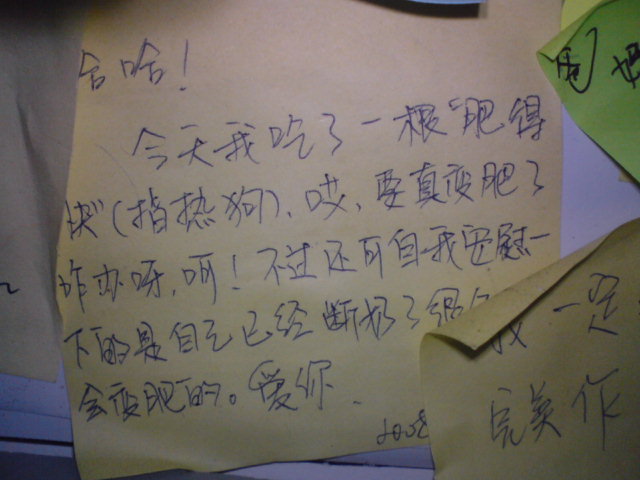 哈哈！
今天我吃了一根“肥得
快”(指热狗)、哎，要真变肥了
咋办呀，呵！不过还可自我安慰一
下的是自己已经断奶了很
会变肥的。爱你.
2008
我一定
完美作